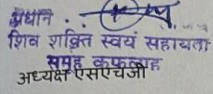 प्रधान . .
शिव शक्ति स्वयं सहायता
समूह कफलाह
अध्यक्ष एसएचजी